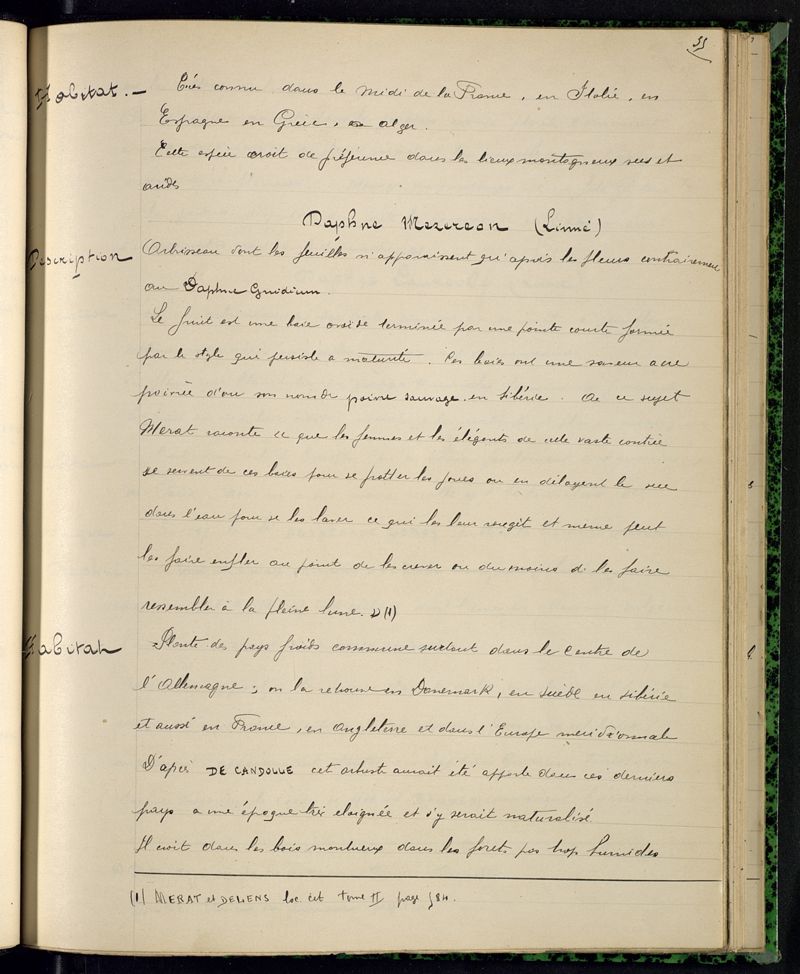 Habitat. —
Très connu dans le midi de la France, en Italie, en
Espagne en Grèce, alger.
Cette espèce croit de préférence dans les lieux montagneux secs et
arides
Daphne Mezereon (Linné)
Description
Arbrisseau dont les feuilles n'apparaissent qu'après les fleurs contrairement
au Daphne Gnidium.
Le fruit est une baie ovoïde terminée par une pointe courte formée
par le style qui persiste a maturité. Ces baies ont une saveur acre
poivrée d'ou son nom de poivre sauvage en Sibérie. A ce sujet
Merat raconte ce que les femmes et les élégants de cette vaste contrée
se servent de ces baies pour se frotter les joues ou en délayent le suc
dans l'eau pour se les laver ce qui les leur rougit et meme peut
les faire enfler au point de les crever ou du moins de les faire
ressembler à la pleine lune. » (1)
Habitat
Plante des pays froids commune surtout dans le Centre de
l'Allemagne ; on la retrouve en Danemark, en suède en sibérie
et aussi en France, en Angleterre et dans l'Europe meridionale
D'après DE CANDOLLE cet arbuste aurait été apporté dans ces derniers
pays a une époque très eloignée et s'y serait naturalisé.
Il croit dans les bois montueux dans les forets pas trop humides
(1) MERAT et DELENS loc. cit tome II page 584.